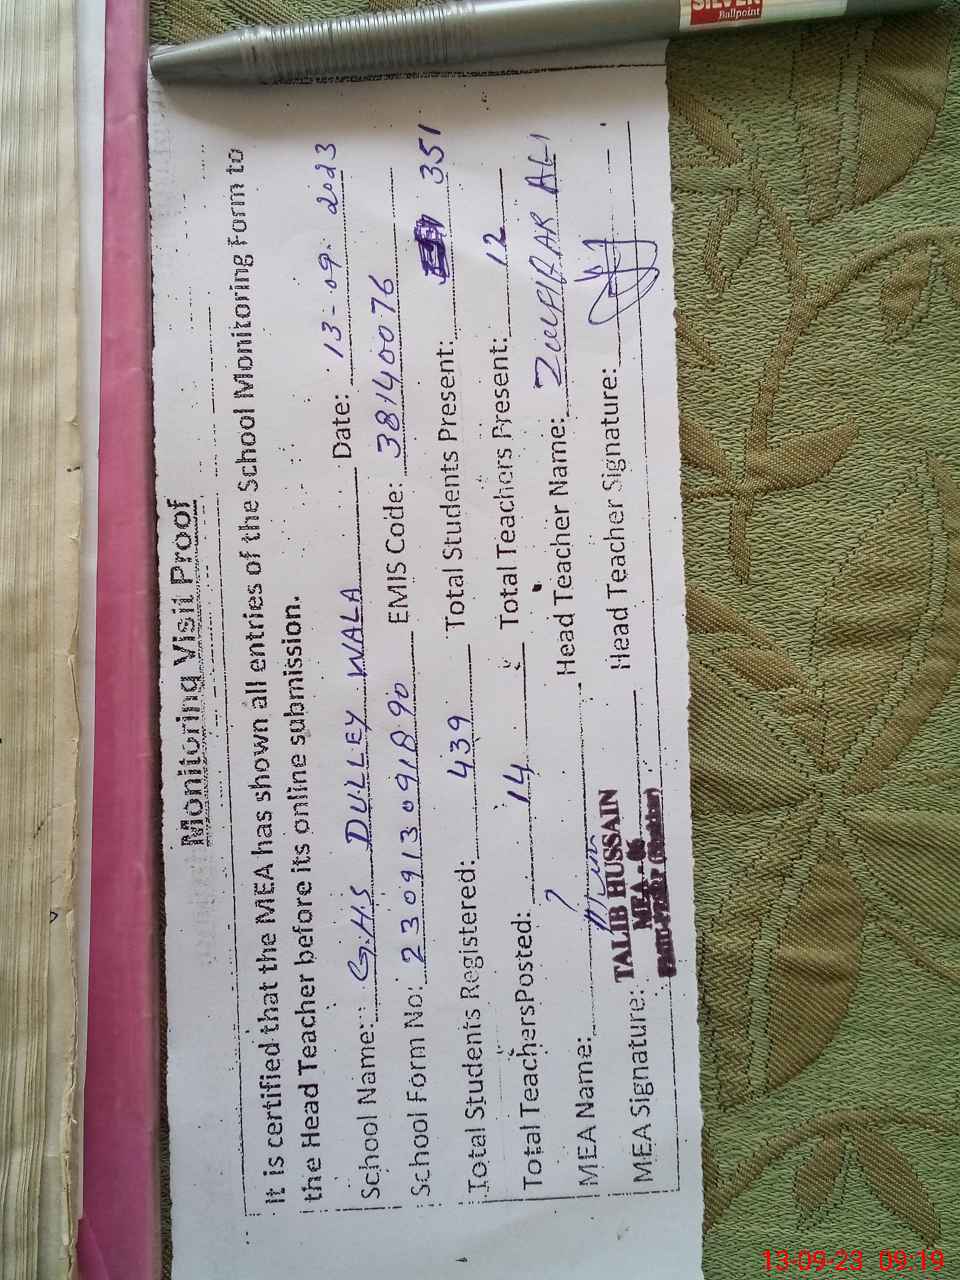 SILVER
Ballpoint
Monitoring Visit Proof
It is certified that the MEA has shown all entries of the School Monitoring Form to
the Head Teacher before its online submission.
School Name: G.H.S DULLEY WALA Date: 13-09-2023
School Form No: 230913091890 EMIS Code: 38140076
Total Students Registered: 439 Total Students Present: 351
Total TeachersPosted: 14 Total Teachers Present: 12
MEA Name: Head Teacher Name: Zulfiqar Ali
TALIB HUSSAIN
MEA - 06
MEA Signature: Head Teacher Signature:
13-09-23 09:19